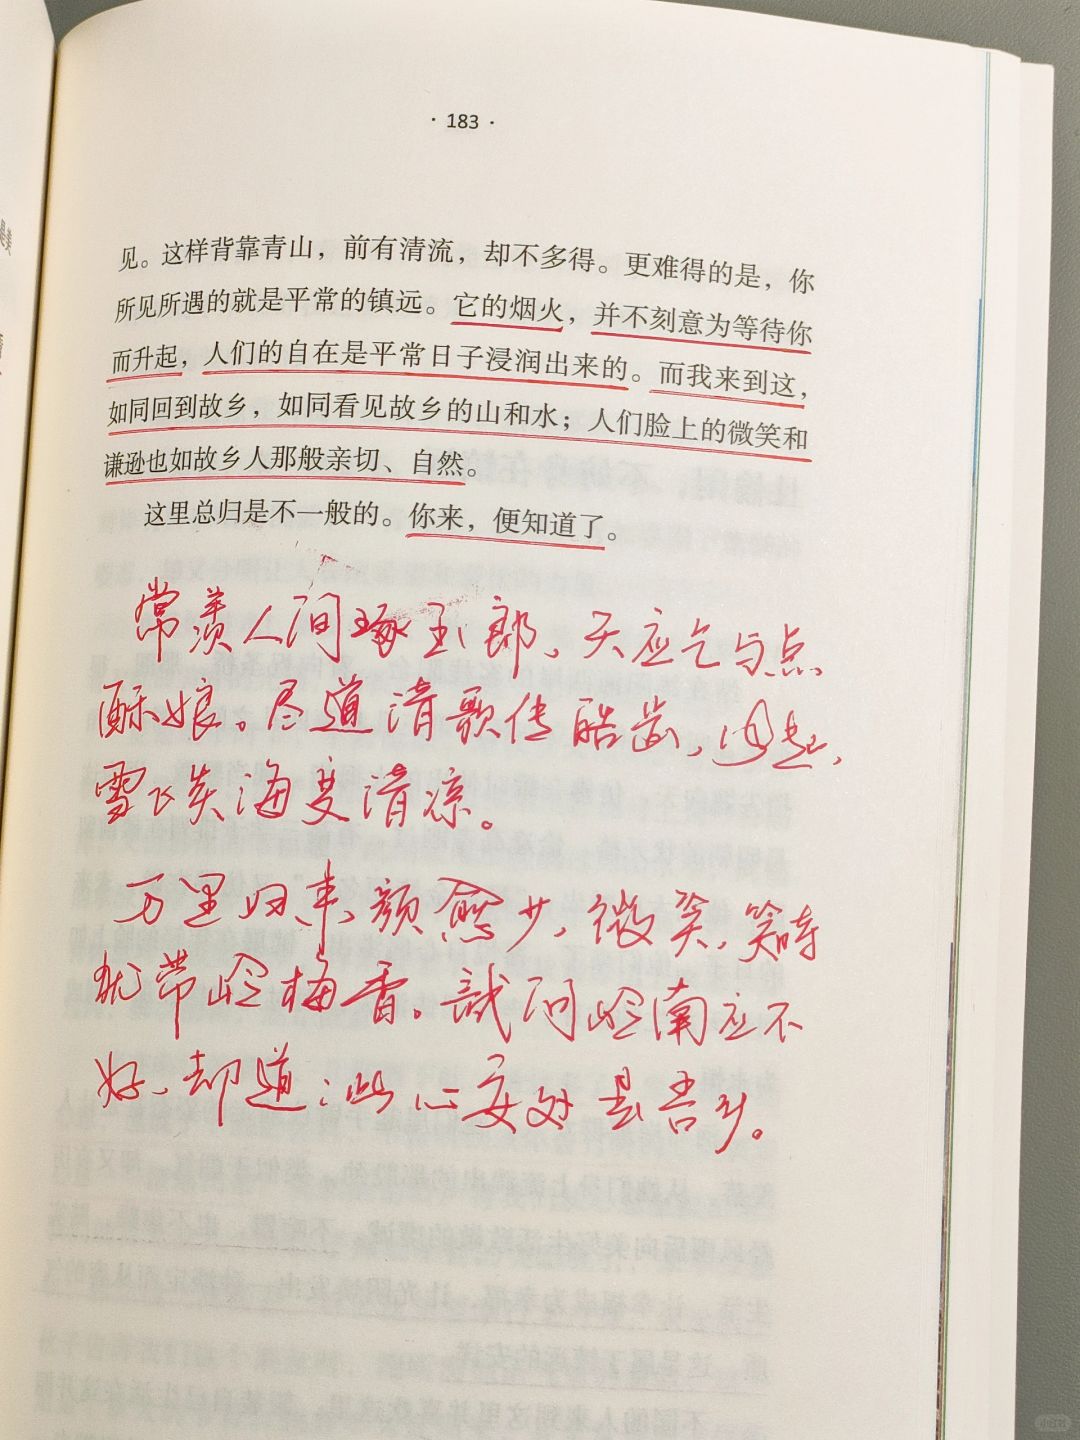 · 183 ·
见。这样背靠青山，前有清流，却不多得。更难得的是，你
所见所遇的就是平常的镇远。它的烟火，并不刻意为等待你
而升起，人们的自在是平常日子浸润出来的。而我来到这，
如同回到故乡，如同看见故乡的山和水；人们脸上的微笑和
谦逊也如故乡人那般亲切、自然。
这里总归是不一般的。你来，便知道了。
常羡人间琢玉郎，天应乞与点
酥娘。尽道清歌传皓齿，风起，
雪飞炎海变清凉。
万里归来颜愈少，微笑，笑时
犹带岭梅香。試问岭南应不
好，却道：此心安处是吾乡。
小红书